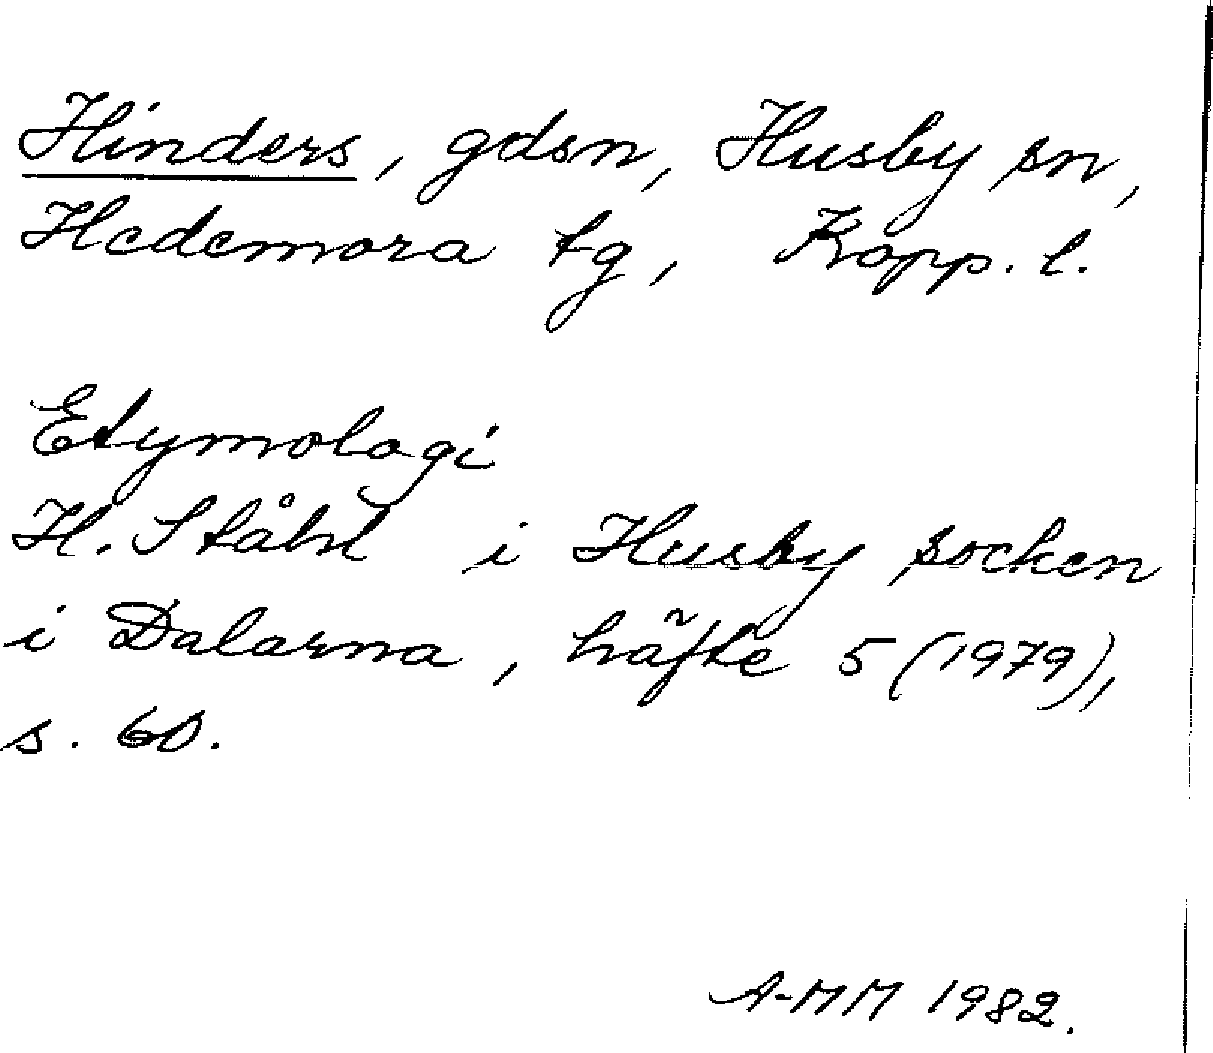 Hinders, gdsn, Husby sn,
Hedemora tg, Kopp. l.
Etymologi
H. Ståhl i Husby socken
i Dalarna, häfte 5 (1979),
s. 60.
A-MM 1982.